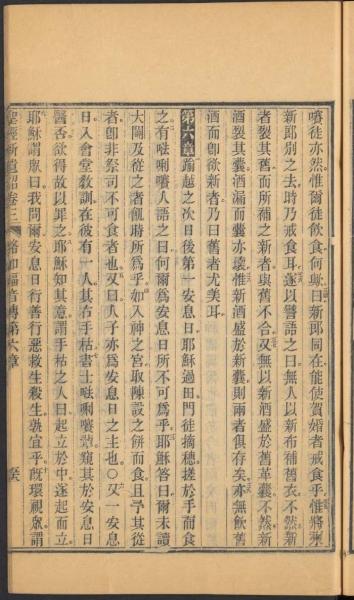 嚏徒亦然惟爾徒飲食何與曰新郎同在能使賀婚者戒食乎惟將來
新郎別之去時乃戒食耳遂以譬語之曰無人以新布補舊衣不然新
者裂其舊而所補之新者與舊不合又無以新酒盛於舊革囊不然新
酒裂其囊酒漏而囊亦壞惟新酒盛於新囊則兩者俱存矣亦無飲舊
酒而卽欲新者乃曰舊者尤美耳
第六章踰越之次日後第一安息日耶穌過田門徒摘穗搓於手而食
之有㕸唎嚏人語之曰何爾爲安息日所不可爲乎耶穌答曰爾未讀
大闢及從之者飢時所爲乎如入神之宮取陳設之餅而食且予其從
者卽非祭司不可食者也又曰人子亦爲安息日之主也〇又一安息
日入會堂敎訓在彼有一人其右手枯書士㕸唎嚏輩窺其於安息日
醫否欲得故以罪之耶穌知其意謂手枯之人曰起立於中遂起而立
耶穌謂衆曰我問爾安息日行善行惡救生殺生孰宜乎旣環視衆謂
聖經新遺詔卷三 路加福音傳第六章